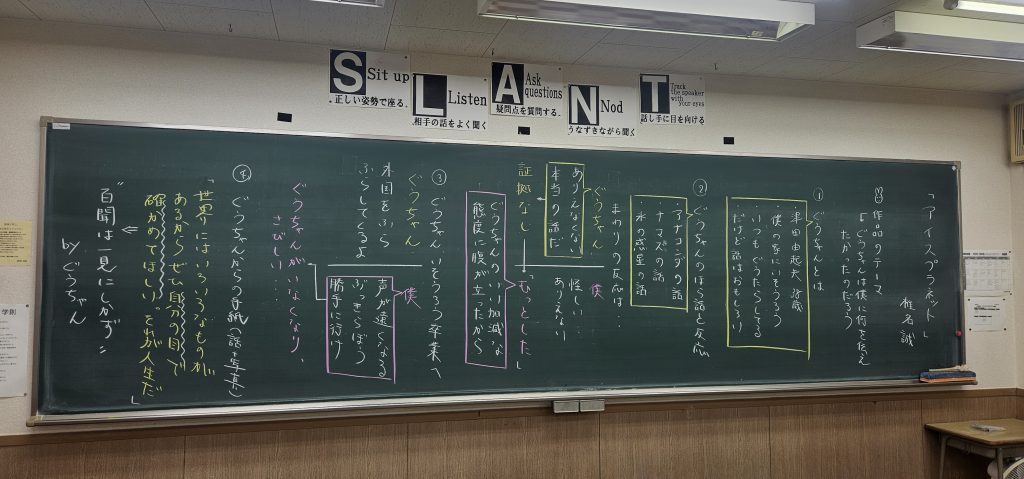 S Sit up
正しい姿勢で座る。
L Listen
相手の話をよく聞く
A Ask questions
疑問点を質問する。
N Nod
うなずきながら聞く
T Track the speaker with your eyes
話し手に目を向ける
「アイスプラネット」
椎名誠
作品のテーマ
「ぐうちゃんは僕に何を伝えたかったのだろう
① ぐうちゃんとは
津田由起夫
・僕の家にいそうろう
・いつもぐうたらしてる
・だけど話はおもしろい
② ぐうちゃんのほら話と反応
・アナコンダの話
・ナマズの話
・氷の惑星の話
まわりの反応は…
ぐうちゃん
ありえなくない
本当の話だ
証拠なし
僕
怪しい
ありえない
「むっとした」
ぐうちゃんのいい加減な
態度に腹が立ったから
③ ぐうちゃんいそうろう卒業へ
ぐうちゃん
外国をふら
ふらしてくるよ
僕
声が遠くなる
ぶっきらぼう
勝手に行け
ぐうちゃんがいなくなり、
さびしい…
④ ぐうちゃんからの手紙(話+写真)
「世界にはいろいろなものが
あるからぜひ自分の目で
確かめてほしい。それが人生だ」
"百聞は一見にしかず"
byぐうちゃん
学則